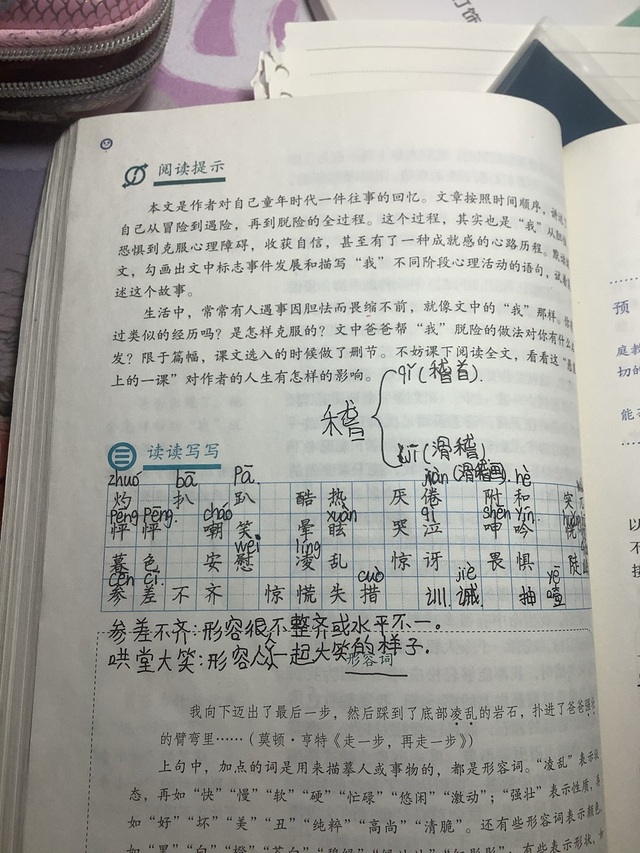 阅读提示
本文是作者对自己童年时代一件往事的回忆。文章按照时间顺序，讲述
自己从冒险到遇险，再到脱险的全过程。这个过程，其实也是“我”从
恐惧到克服心理障碍，收获自信，甚至有了一种成就感的心路历程。
文，勾画出文中标志事件发展和描写“我”不同阶段心理活动的语句，试着
述这个故事。
生活中，常常有人遇事因胆怯而畏缩不前，就像文中的“我”那样。
过类似的经历吗？是怎样克服的？文中爸爸帮“我”脱险的做法对你有什么
发？限于篇幅，课文选入的时候做了删节。不妨课下阅读全文，看看这“悬
上的一课”对作者的人生有怎样的影响。
qǐ(稽首).
稽
jī(滑稽)
(滑稽画).
读读写写
zhuó bā pā. juàn hè
灼 扒 趴 酷热 厌倦 附和
pēng pēng. cháo xuàn qì shēn yín
怦怦 嘲笑 晕眩 哭泣 呻吟 恍
wèi líng
暮色 安慰 凌乱 惊讶 畏惧
cēn cī. cuò jiè yē
参差不齐 惊慌失措 训诫 抽噎
参差不齐:形容很不整齐或水平不一。
哄堂大笑:形容众人一起大笑的样子.
形容词
我向下迈出了最后一步，然后踩到了底部凌乱的岩石，扑进了爸爸强壮
的臂弯里……（莫顿·亨特《走一步，再走一步》）
上句中，加点的词是用来描摹人或事物的，都是形容词。“凌乱”表示状
态，再如“快”“慢”“软”“硬”“忙碌”“悠闲”“激动”；“强壮”表示性质，再
如“好”“坏”“美”“丑”“纯粹”“高尚”“清脆”。还有些形容词表示颜色，
预
庭教
切的
能